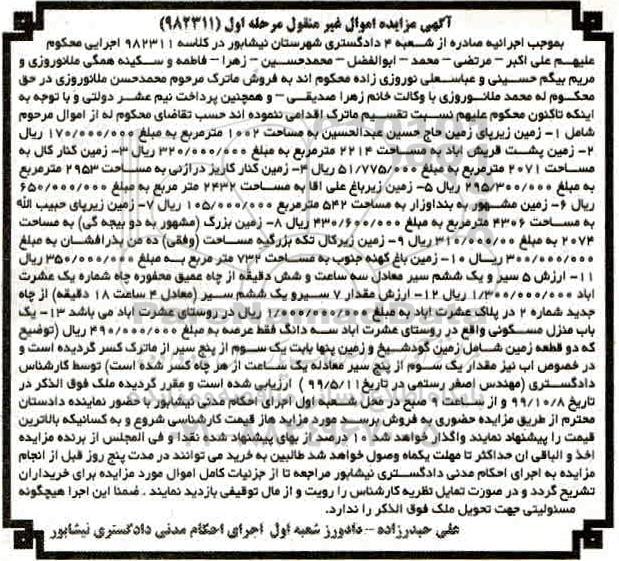 آگهی مزایده اموال غیر منقول مرحله اول (۹۸۲۳۱۱)
بموجب اجرائیه صادره از شعبه ۴ دادگستری شهرستان نیشابور در کلاسه ۹۸۲۳۱۱ اجرایی محکوم
علیهم علی اکبر – مرتضی – محمد – ابوالفضل – محمدحسین – زهرا – فاطمه و سکینه همگی ملانوروزی و
مریم بیگم حسینی و عباسعلی نوروزی زاده محکوم اند به فروش ماترک مرحوم محمدحسن ملانوروزی در حق
محکوم له محمد ملانوروزی با وکالت خانم زهرا صدیقی – و همچنین پرداخت نیم عشر دولتی و با توجه به
اینکه تاکنون محکوم علیهم نسبت تقسیم ماترک اقدامی ننموده اند حسب تقاضای محکوم له از اموال مرحوم
شامل ۱- زمین زیرپای زمین حاج حسین عبدالحسین به مساحت ۱۰۰۲ مترمربع به مبلغ ۱۷۰/۰۰۰/۰۰۰ ریال
۲- زمین پشت قریش اباد به مساحت ۲۲۱۴ مترمربع به مبلغ ۳۲۰/۰۰۰/۰۰۰ ریال ۳- زمین کنار کال به
مساحت ۲۰۷۱ مترمربع به مبلغ ۵۱/۷۷۵/۰۰۰ ریال ۴- زمین کنار کاریز درازنی به مساحت ۲۹۵۳ مترمربع
به مبلغ ۲۹۵/۳۰۰/۰۰۰ ریال ۵- زمین زیرباغ علی اقا به مساحت ۲۴۳۲ متر مربع به مبلغ ۶۵۰/۰۰۰/۰۰۰
ریال ۶- زمین مشهور به بنداوزار به مساحت ۵۴۲ مترمربع ۱۰۵/۰۰۰/۰۰۰ ریال ۷- زمین زیرپای حبیب الله
به مساحت ۴۳۰۶ مترمربع به مبلغ ۴۳۰/۶۰۰/۰۰۰ ریال ۸- زمین بزرگ (مشهور به دو بیجه گی) به مساحت
۲۰۷۴ به مبلغ ۳۱۰/۰۰۰/۰۰۰ ریال ۹- زمین زیرکال تکه بزرگیه مساحت (وقفی) ده من بذرافشان به مبلغ
۳۰۰/۰۰۰/۰۰۰ ریال ۱۰- زمین باغ کهنه جنوب به مساحت ۷۳۲ متر مربع به مبلغ ۳۵۰/۰۰۰/۰۰۰ ریال
۱۱- ارزش ۵ سیر و یک ششم سیر معادل سه ساعت و شش دقیقه از چاه عمیق محفوره چاه شماره یک عشرت
اباد ۱/۳۰۰/۰۰۰/۰۰۰ ریال ۱۲- ارزش مقدار ۷ سیرو یک ششم سیر (معادل ۴ ساعت ۱۸ دقیقه) از چاه
جدید شماره ۲ در پلاک عشرت اباد به مبلغ ۱/۰۰۰/۰۰۰/۰۰۰ ریال در روستای عشرت اباد می باشد ۱۳- یک
باب منزل مسکونی واقع در روستای عشرت اباد سه دانگ فقط عرصه به مبلغ ۴۹۰/۰۰۰/۰۰۰ ریال (توضیح
که دو قطعه زمین شامل زمین گودشیخ و زمین پنها بابت یک سوم از پنج سیر از ماترک کسر گردیده است و
در خصوص اب نیز مقدار یک سوم از پنج سیر معادله یک ساعت از هر چاه کسر شده است) توسط کارشناس
دادگستری (مهندس اصغر رستمی در تاریخ ۹۹/۵/۱۱) ارزیابی شده است و مقرر گردیده ملک فوق الذکر در
تاریخ ۹۹/۱۰/۸ و از ساعت ۹ صبح در محل شعبه اول اجرای احکام مدنی نیشابور با حضور نماینده دادستان
محترم از طریق مزایده حضوری به فروش برسد مورد مزاید هاز قیمت کارشناسی شروع و به کسانیکه بالاترین
قیمت را پیشنهاد نمایند واگذار خواهد شد ۱۰ درصد از بهای پیشنهاد شده نقدا و فی المجلس از برنده مزایده
اخذ و الباقی ان حداکثر تا مهلت یکماه وصول خواهد شد طالبین به خرید می توانند در مدت پنج روز قبل از انجام
مزایده به اجرای احکام مدنی دادگستری نیشابور مراجعه تا از جزئیات کامل اموال مورد مزایده برای خریداران
تشریح گردد و در صورت تمایل نظریه کارشناس را رویت و از مال توقیفی بازدید نمایند . ضمنا این اجرا هیچگونه
مسئولیتی جهت تحویل ملک فوق الذکر را ندارد.
علی حیدرزاده – دادورز شعبه اول اجرای احکام مدنی دادگستری نیشابور